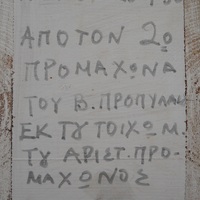 ΑΠΟ ΤΟΝ 2ο
ΠΡΟΜΑΧΩΝΑ
ΤΟΥ Β. ΠΡΟΠΥΛΑΙ
ΕΚ ΤΥ ΤΟΙΧΩΜ.
ΤΥ ΑΡΙΣΤ. ΠΡΟ-
ΜΑΧΩΝΟΣ